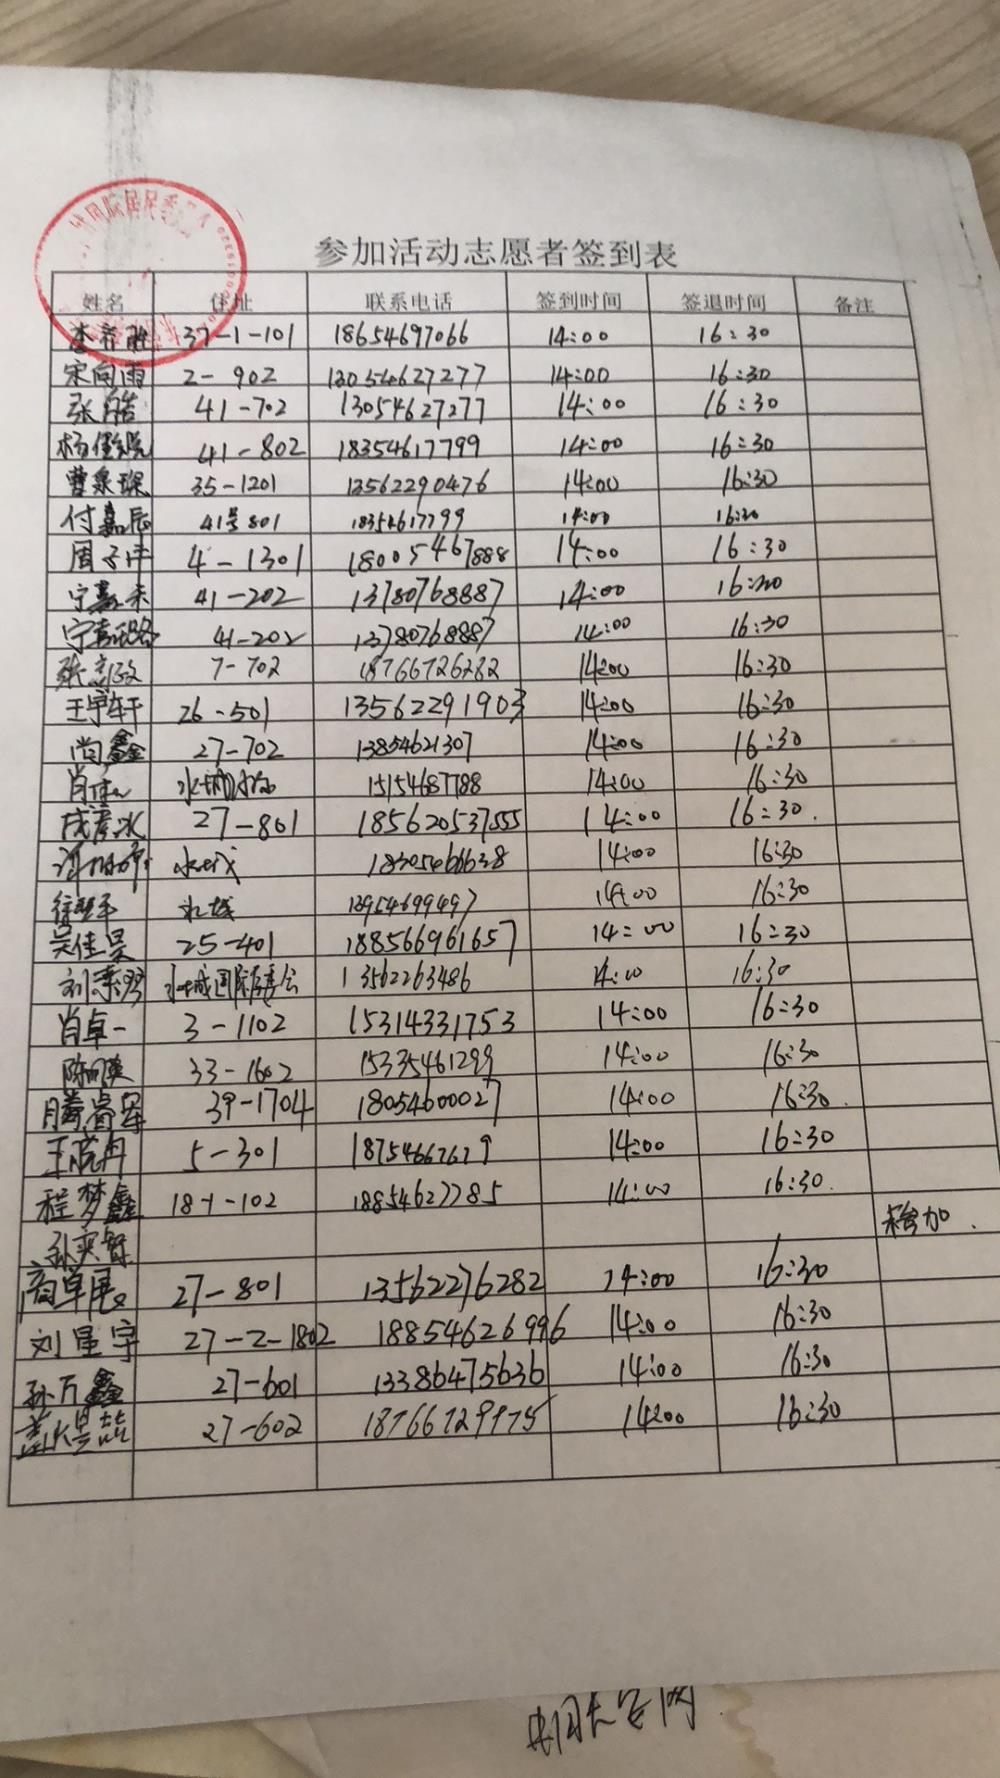 国际居民委
参加活动志愿者签到表
姓名 住址 联系电话 签到时间 签退时间 备注
37-1-101 18654697066 14:00 16:30
宋向雨 2-902 13054627277 14:00 16:30
张皓 41-702 13054627277 14:00 16:30
41-802 18354617799 14:00 16:30
曹泉琛 35-1201 13562290476 14:00 16:30
付嘉辰 41号801 18354617799 14:00 16:30
周子洋 4-1301 18005467888 14:00 16:30
宁嘉禾 41-202 13780768887 14:00 16:30
41-202 13780768887 14:00 16:30
7-702 18766726282 14:00 16:30
王宇轩 26-501 13562291903 14:00 16:30
尚鑫 27-702 13854621307 14:00 16:30
15154687788 14:00 16:30
成彦冰 27-801 18562053755 14:00 16:30
水城 18305466638 14:00 16:30
水城 13954699497 14:00 16:30
吴佳昊 25-401 188566961657 14:00 16:30
水城国际居委会 13562263486 14:00 16:30
肖卓一 3-1102 15314331753 14:00 16:30
33-1602 15335461299 14:00 16:30
滕睿军 39-1704 18054600027 14:00 16:30
5-301 18754667679 14:00 16:30
程梦鑫 18-1-102 18854627785 14:00 16:30
孙奕智 未参加.
商卓展 27-801 13562276282 14:00 16:30
刘星宇 27-2-1802 18854626996 14:00 16:30
孙万鑫 27-601 13386475636 14:00 16:30
27-602 18766729975 14:00 16:30